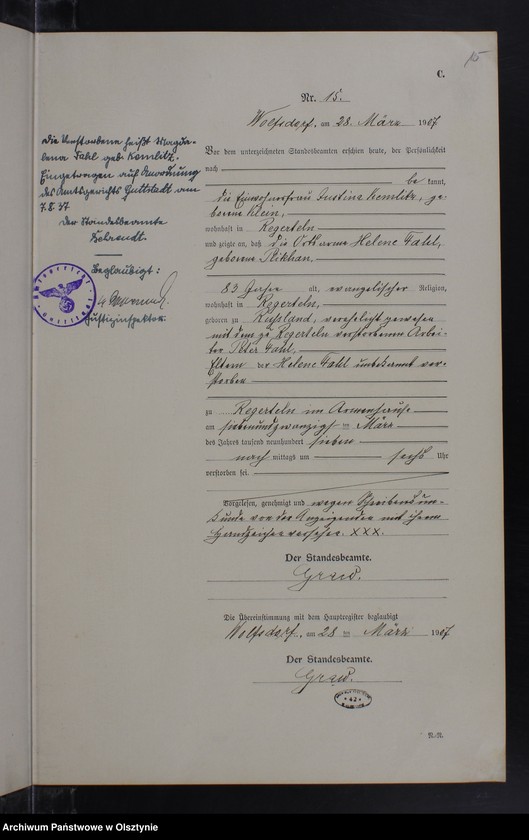 15
C.
Nr. 15.
Wolfsdorf, am 28. März 1907.
Die Verstorbene heißt Magda-
lena Fahl geb. Kemlitz.
Eingetragen auf Anordnung
des Amtsgerichts Guttstadt am
7.8.37
Der Standesbeamte
Behrendt.
Beglaubigt:
Justizinspektor
Vor dem unterzeichneten Standesbeamten erschien heute, der Persönlichkeit
nach
be kannt,
die Einwohnerfrau Justine Kemlitz, ge-
borene Klein,
wohnhaft in Regerteln
und zeigte an, daß die Ortsarme Helene Fahl,
geborene
83 Jahre alt, evangelischer Religion,
wohnhaft in Regerteln,
geboren zu Russland, verehelicht gewesen
mit dem zu Regerteln verstorbenen Arbei-
ter Peter Fahl,
Eltern der Helene Fahl unbekannt ver-
storben
zu Regerteln im Armenhause
am siebenundzwanzigsten März
des Jahres tausend neunhundert sieben
nach mittags um sechs Uhr
verstorben sei.
Vorgelesen, genehmigt und wegen Schreibensun-
kunde von der Anzeigenden mit ihrem
Handzeichen versehen. XXX.
Der Standesbeamte.
Graw.
Die Übereinstimmung mit dem Hauptregister beglaubigt
Wolfsdorf, am 28 ten März 1907
Der Standesbeamte.
Graw.
42
Archiwum Państwowe w Olsztynie